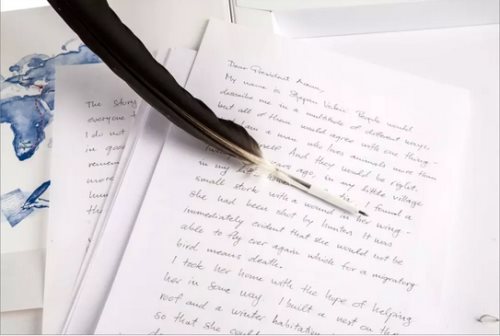 The story
everyone
I do not
in good
more
the
Dear President Aoun,
My name is Stjepan Vokić. People would
describe me in a multitude of different ways,
but all of them would agree with one thing -
I am a man who loves animals more than
And they would be right.
years ago, in my little village
in I found a
small stork with a wound in her wing -
she had been shot by hunters. It was
immediately evident that she would not be
able to fly ever again which for a migrating
bird means death.
I took her home with the hope of helping
her in some way. I built a nest on the
roof and a winter habitation
so that she could